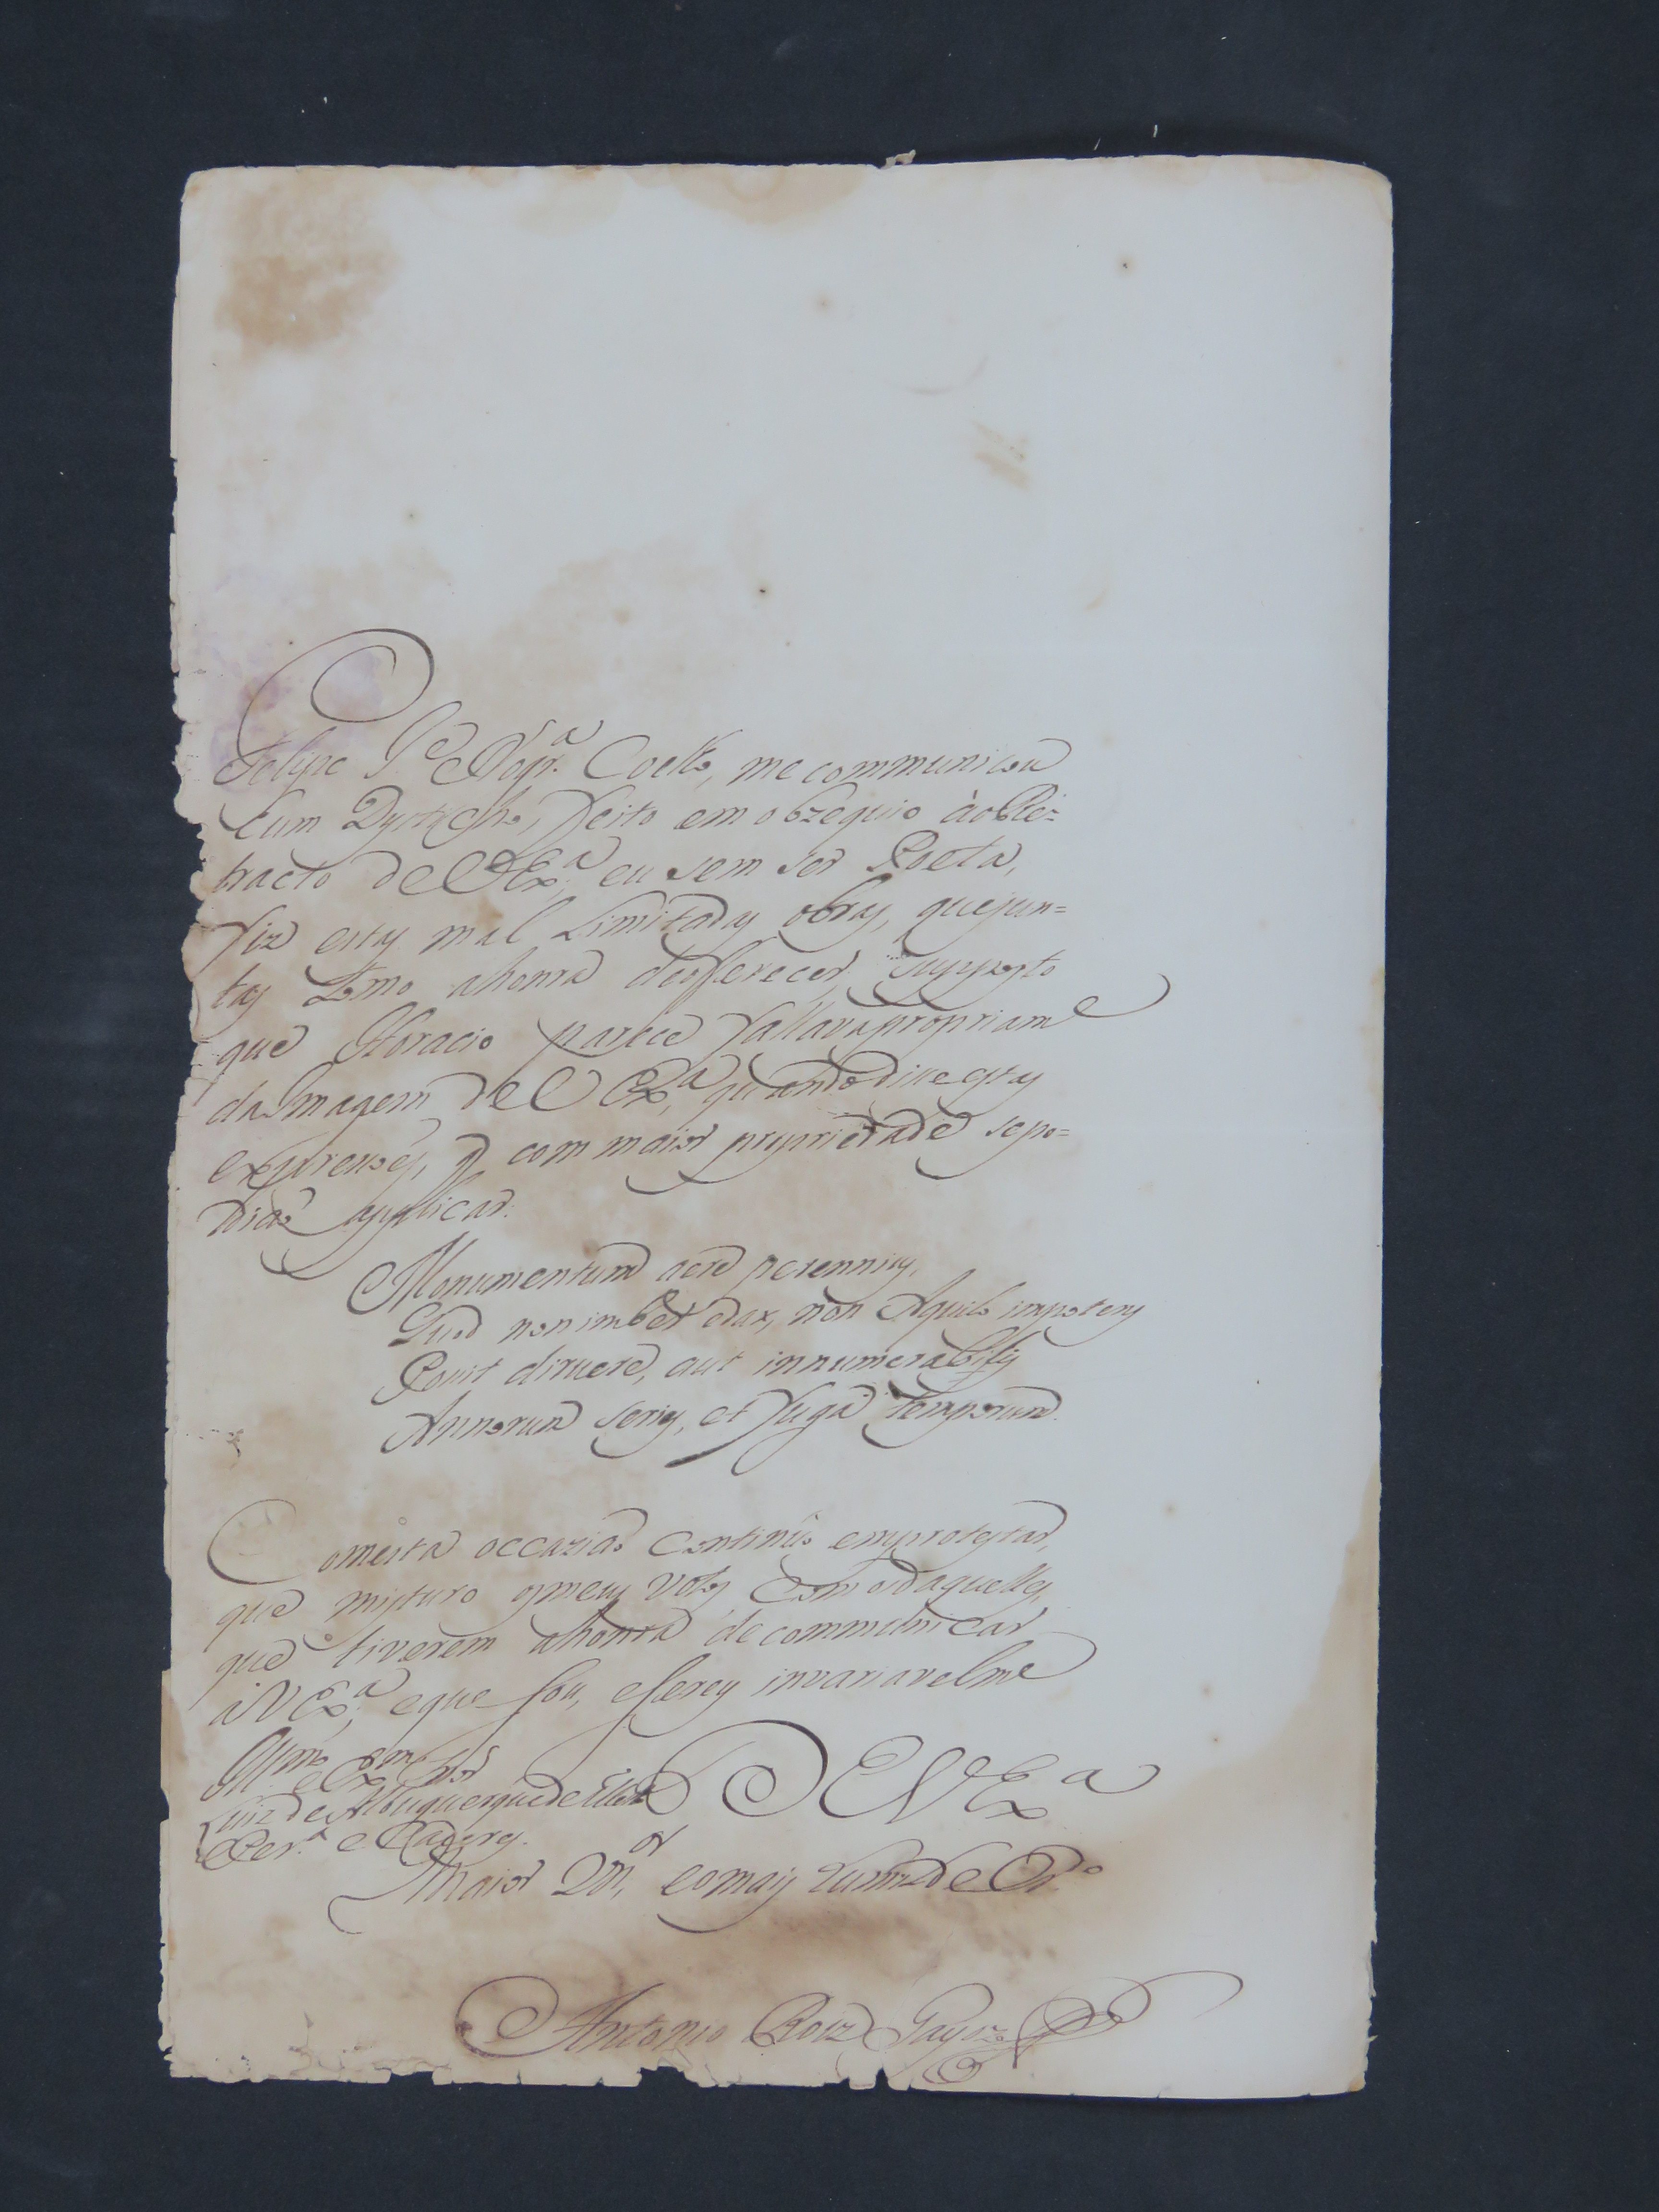 Felipe Je. Nogr.a Coelho, me communicou
hum Dystycho, feito em obzequio ào Re=
tracto de VEx.a, eu sem ser Poeta,
fiz estas mal Limitadas obras, que jun=
tas tomo ahonra deofferecer, supposto
que Horacio parece fallava propriam.e
da Imagem de VEx.a, quando disse estas
expressoẽs, q com maior propriedade sepo=
diaõ applicar.
Monumentum aere perennius,
Quod non imber edax, non Aquilo impotens
Possit diruere, aut innumerabilis
Annorum series, et fuga temporum.
Comesta occaziaõ Continúo emprotestar,
que misturo osmeus votos Com osdaquelles,
que tiverem ahonra decommunicar
àVEx.a, eque sou, eserey invariavelm.e
Ill.mo e Ex.mo Snr
Luiz de Albuquerque de Mello
Per.a e Caceres.
DEVEx.a
Maior Vn.or, eomais humilde Cr.o
Antonio Roiz Gayozo